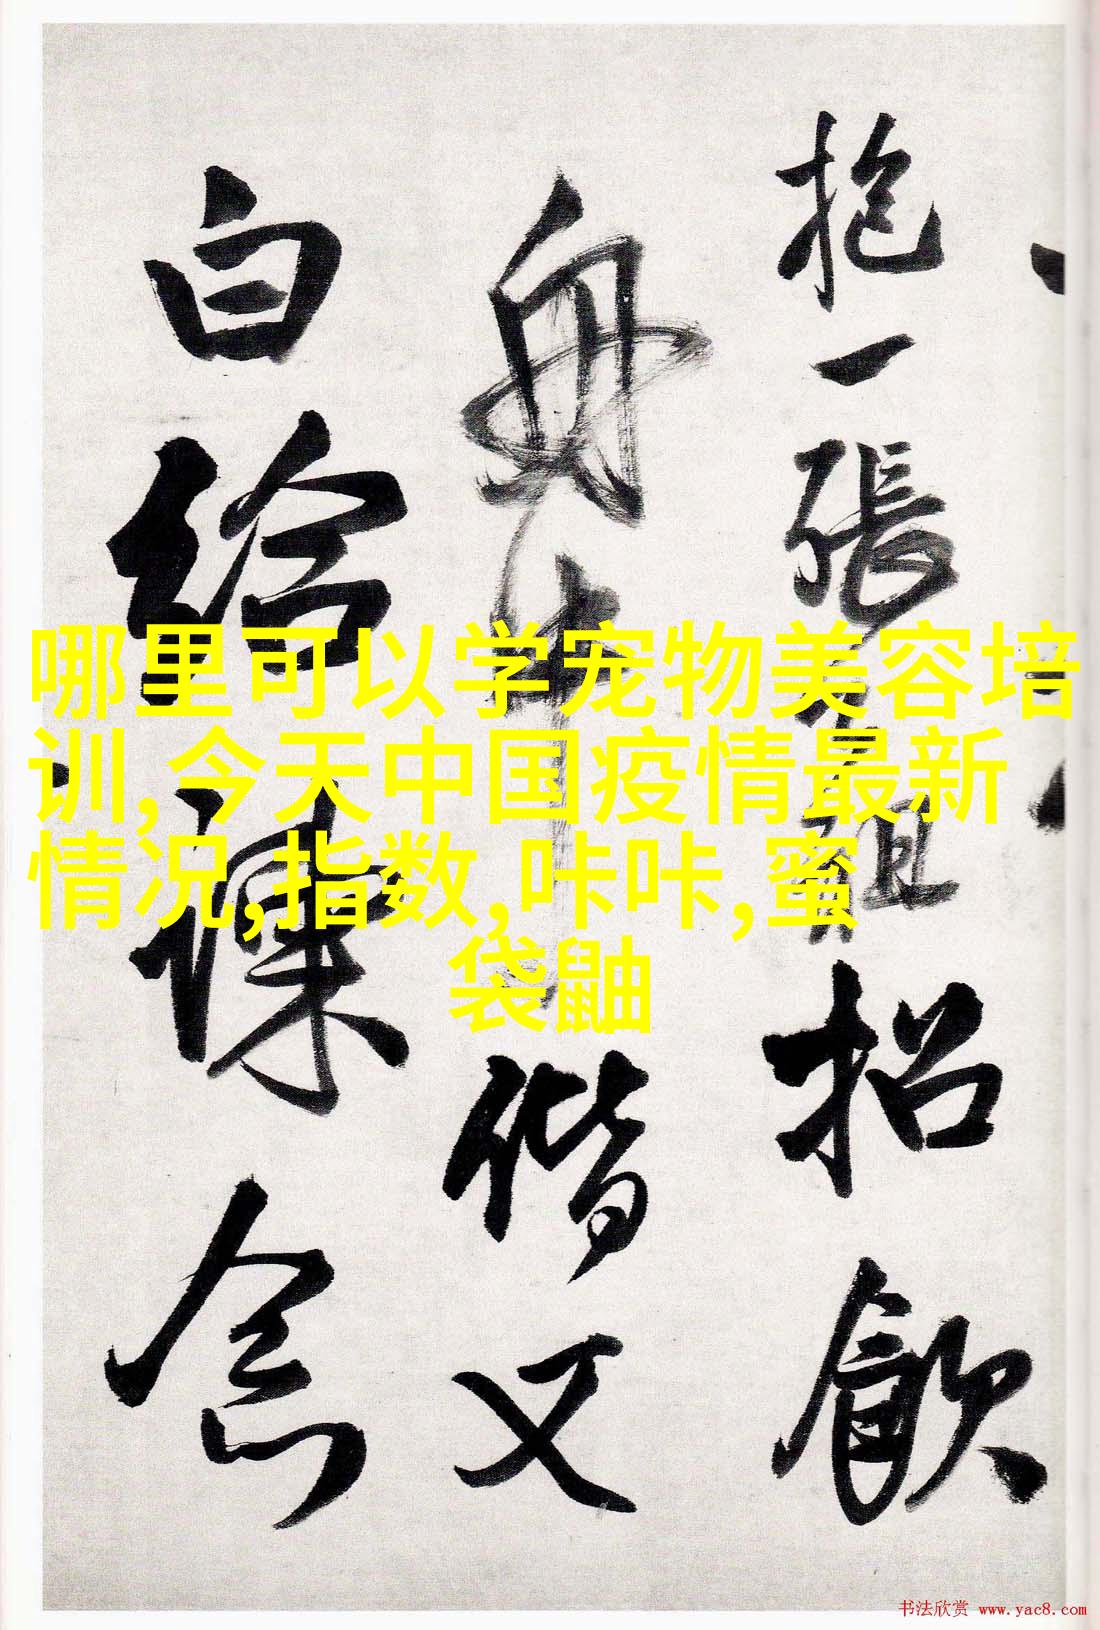 抱一張
招飲
舟中
偕又
白給諫
念
哪里可以学宠物美容培
训,今天中国疫情最新
情况,指数,咔咔,蜜
袋鼬
书法欣赏 www.yac8.com